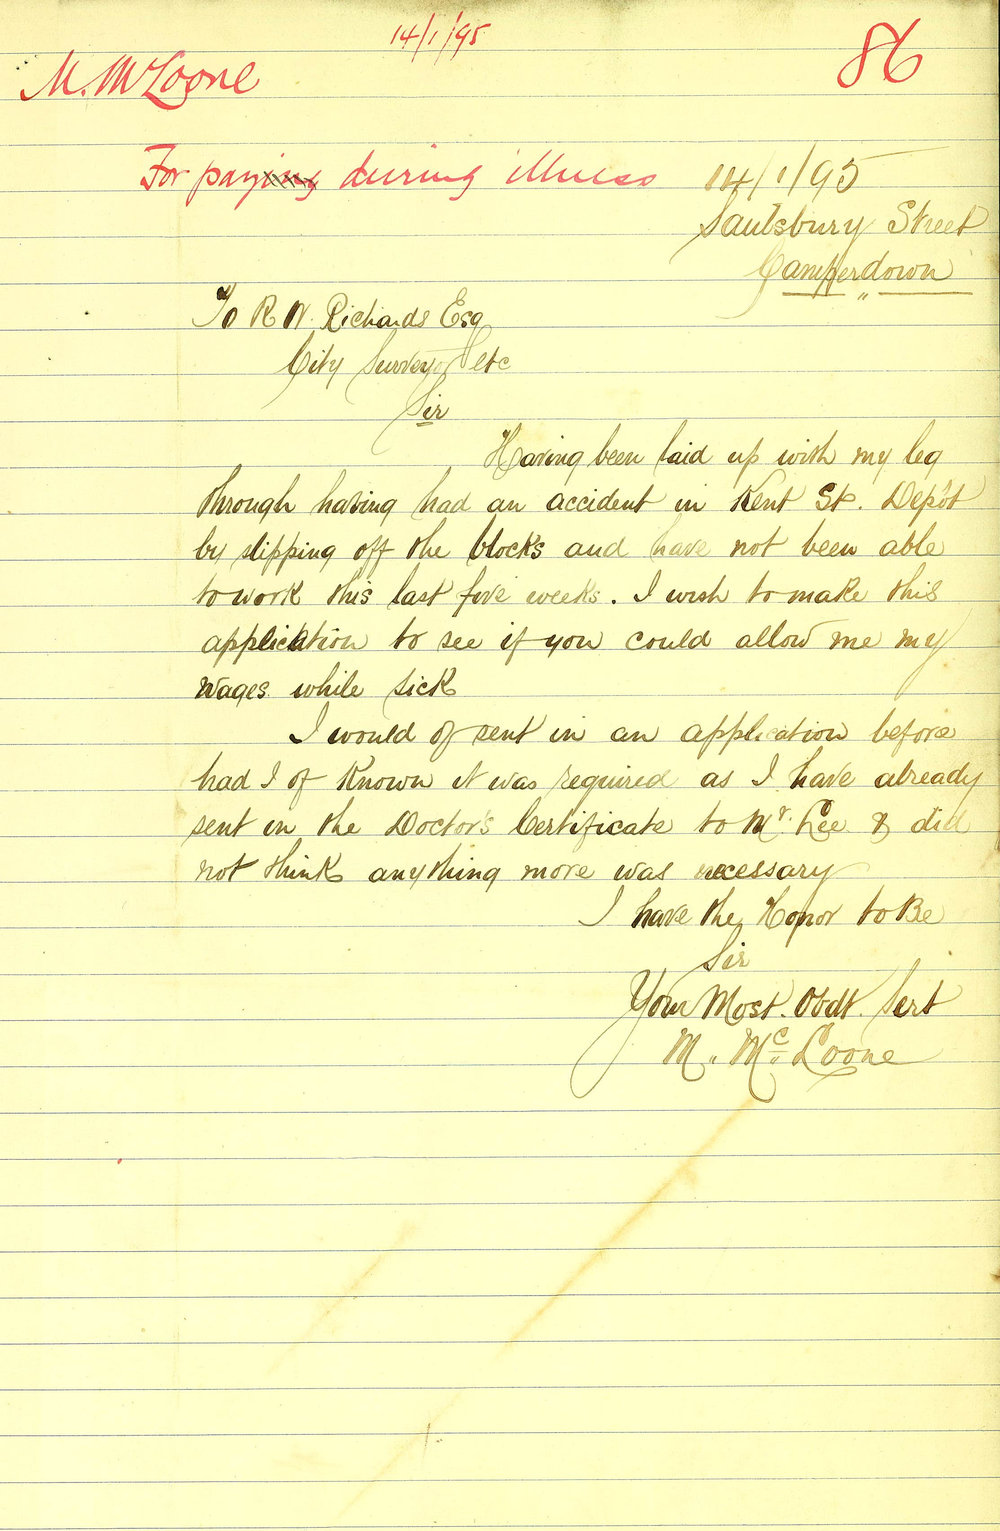 14/1/95
M. McLoone
86
For paying during illness
14/1/95
Saulsbury Street
Camperdown
To R W. Richards Esq
City Surveyor etc
Sir
Having been laid up with my leg
through having had an accident in Kent St. Depôt
by slipping off the blocks and have not been able
to work this last five weeks. I wish to make this
application to see if you could allow me my
wages while sick
I would of sent in an application before
had I of Known it was required as I have already
sent in the Doctor's Certificate to Mr. Lee & did
not think anything more was necessary
I have the Honor to Be
Sir
Your Most. Obdt. Servt
M. McLoone